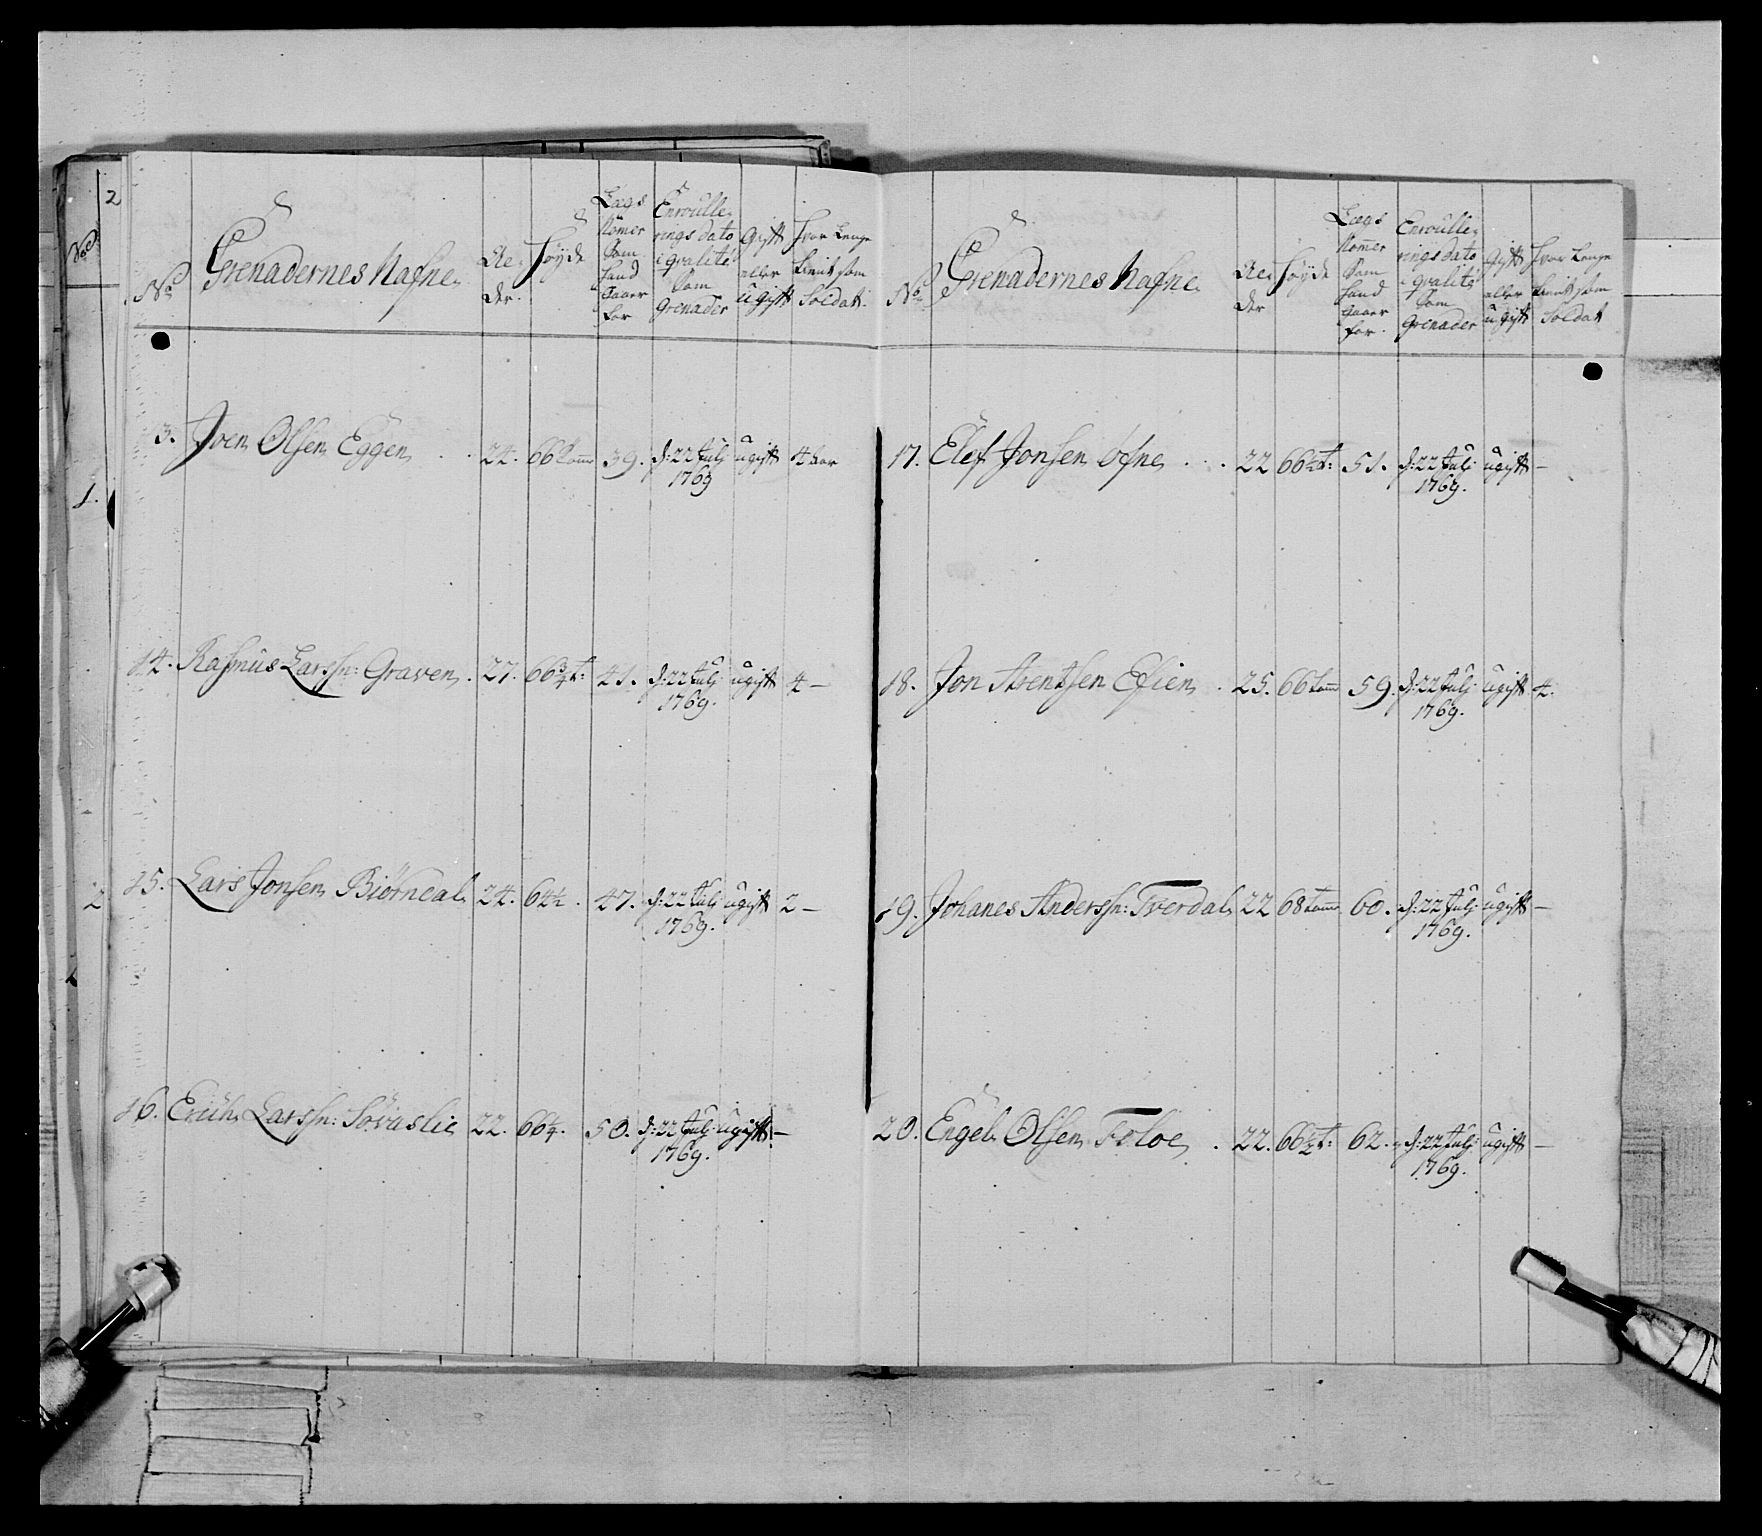 No
Grenadernes Nafne
Al-
der.
Høyde
Lægs
Nomer
Som
hand
Staaer
for
Enroulle-
rings dato
i qvalité
Som
Grenader
Gift
eller
ugift
Hvor Lenge
tient som
Soldat.
13. Iver Olsen Eggen 24. 66 tomr 39. d: 22 Julj ugift 4 aar
1769
14. Rasmus Larssn: Graven. 27. 66 3/4 t: 41. d: 22 Julj ugift 4 –
1769.
15. Lars Jonsen Biørneal 24. 64 1/2. 47. d: 22 Julj ugift 2 –
1769.
16. Erich Larssn: Sørraslie 22. 66 1/4. 50. d: 22 Julj ugift –
1769.
No
Grenadernes Nafne
Al-
der
Høyde
Lægs
Nomer
Som
hand
staaer
for.
Enroulle-
rings dato
i qvalité
Som
Grenader
Gift
eller
ugift
Hvor Lenge
tient som
Soldat
17. Elef Jonsen Øfne 22 66 1/2 t: 51. d: 22 Julj ugift –
1769.
18. Jon Arentsen Efien 25. 66 tomr 59. d: 22 Julj ugift 4.
1769.
19. Johanes Anderssn: Tverdal 22 68 tomr 60. d: 22 Julj ugift –
1769.
20. Engel Olsen Foloe. 22. 66 1/2 t: 62. d: 22 Julj ugift –
1769.
No
2
1.
2